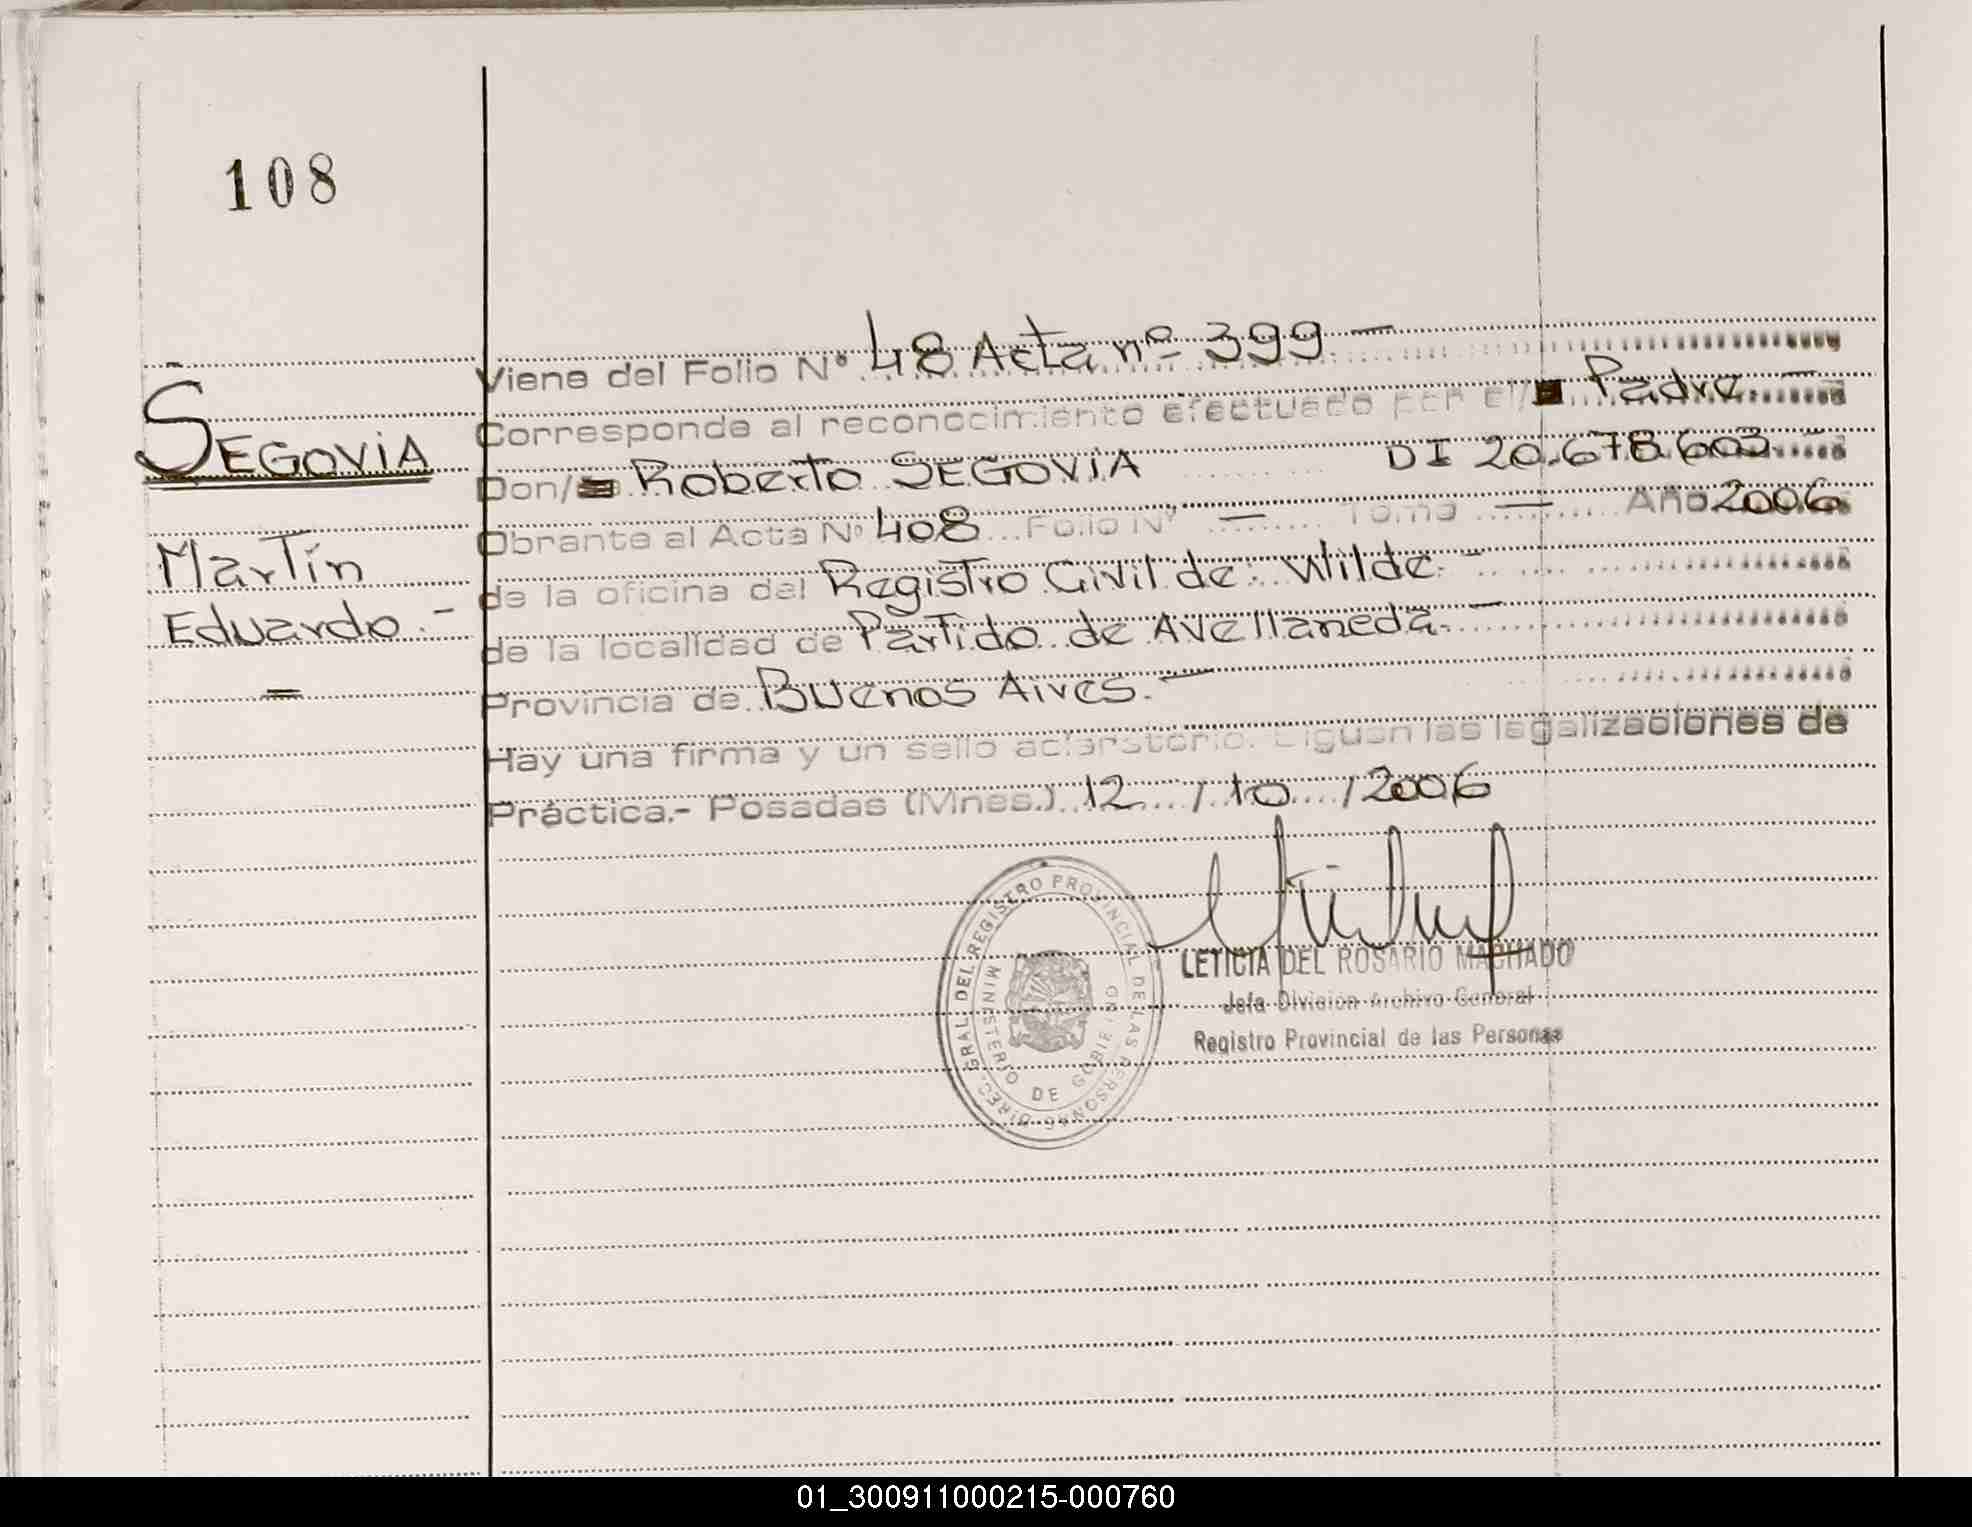 108
SEGOVIA
Martín
Eduardo.-
=
Viene del Folio Nº 48 Acta nº 399.-
Corresponde al reconocimiento efectuado por el/ Padre.-
Don/ Roberto SEGOVIA DI 20.678.603.-
Obrante al Acta Nº 408 Folio Nº — Tomo — Año 2006
de la oficina del Registro Civil de: Wilde.-
de la localidad de Partido de Avellaneda.-
Provincia de Buenos Aires.-
Hay una firma y un sello aclaratorio. Siguen las legalizaciones de
Práctica.- Posadas (Mnes.) 12 / 10 / 2006
DIREC. GRAL DEL REGISTRO PROVINCIAL DE LAS PERSONAS
MINISTERIO DE GOBIERNO
LETICIA DEL ROSARIO MACHADO
Jefa División Archivo General
Registro Provincial de las Personas
01_300911000215-000760